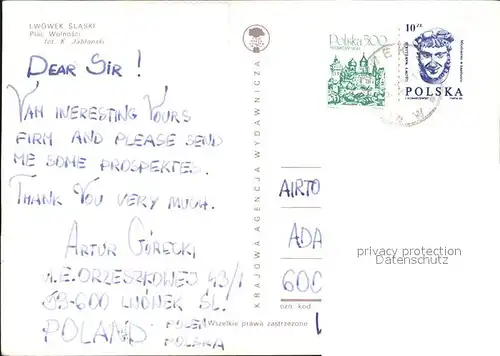 LWÓWEK ŚLĄSKI
Plac Wolności
fot. K. Jabłoński
DEAR SIR !
YAM INERESTING YOURS
FIRM AND PLEASE SEND
ME SOME PROSPEKTES.
THANK YOU VERY MUCH.
ARTUR GÓRECKI
E. ORZESZKOWEJ 43/1
59-600 LWÓWEK ŚL.
POLAND POLEN
POLSKA
Wszelkie prawa zastrzeżone
KRAJOWA AGENCJA WYDAWNICZA
Polska 500
10 ZŁ
POLSKA
AIRTO
ADA
600
ozn. kod
privacy protection
Datenschutz